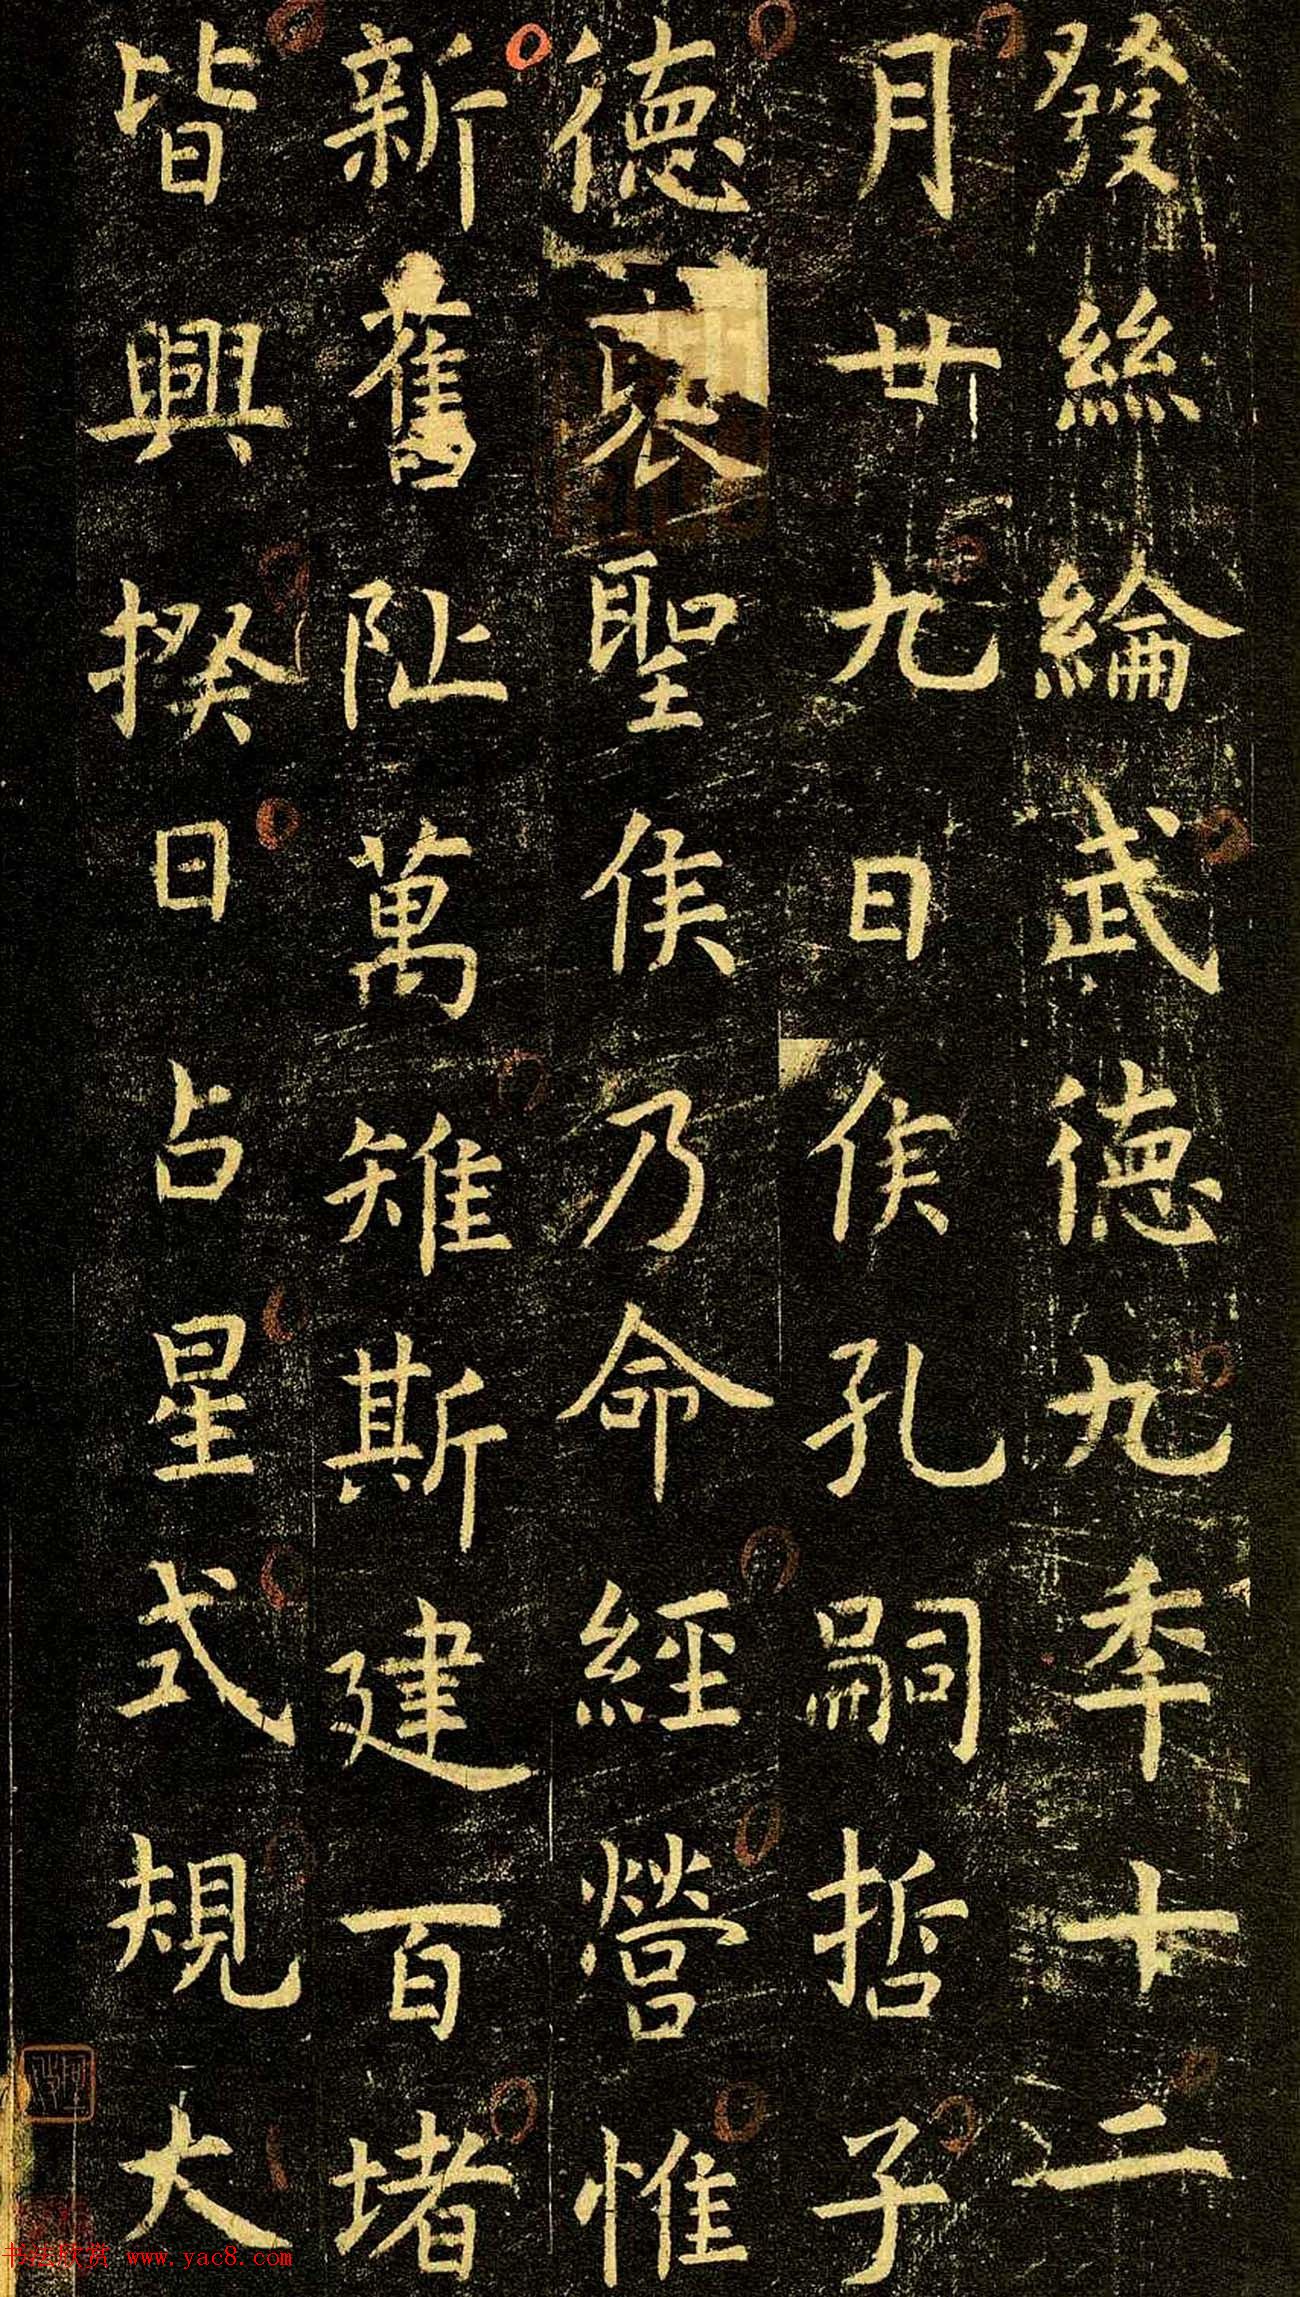 發絲綸武德九年十二
月廿九日侯孔嗣哲子
德裒聖侯乃命經營惟
新舊阯萬雉斯建百堵
皆興揆日占星式規大
书法欣赏 www.yac8.com